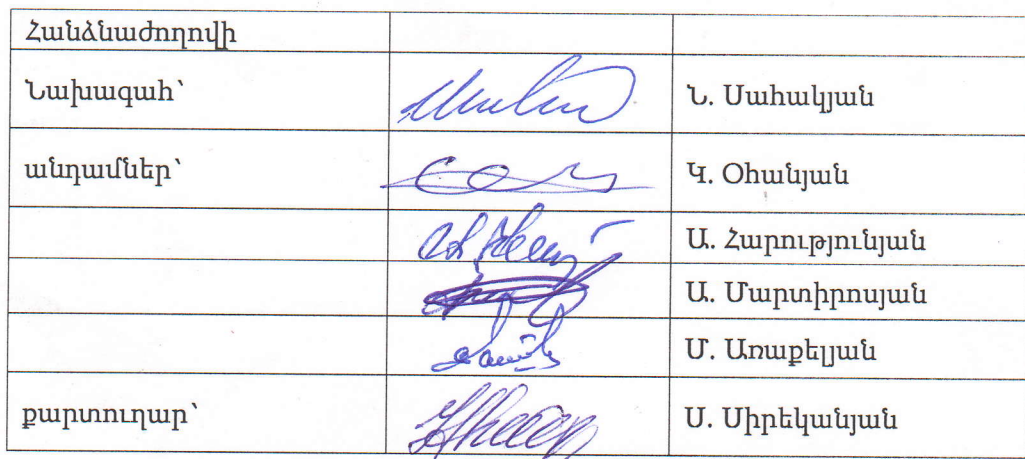 Հանձնաժողովի
Նախագահ՝ Ն. Սահակյան
անդամներ՝ Կ. Օհանյան
Ա. Հարությունյան
Ա. Մարտիրոսյան
Մ. Առաքելյան
քարտուղար՝ Ս. Սիրեկանյան